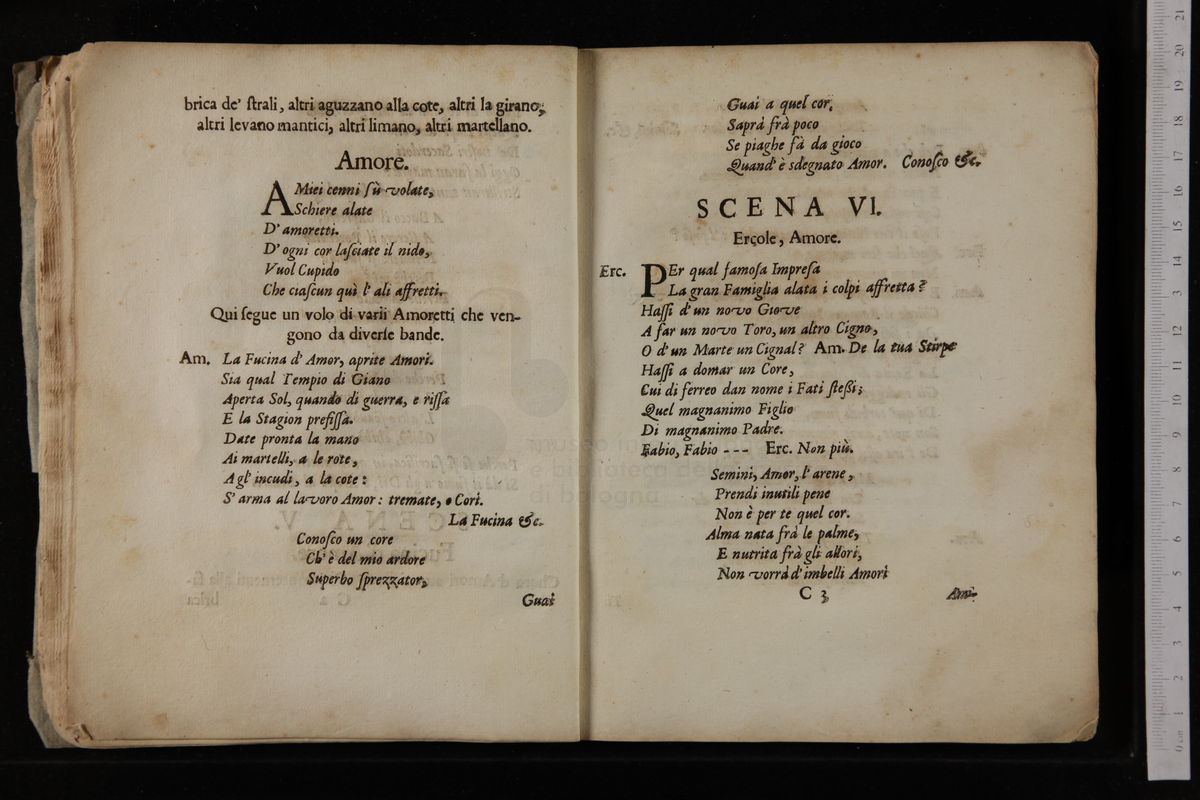 brica de' ſtrali, altri aguzzano alla cote, altri la girano,
altri levano mantici, altri limano, altri martellano.
Amore.
A Miei cenni ſù volate,
Schiere alate
D'amoretti.
D'ogni cor laſciate il nido,
Vuol Cupido
Che ciaſcun quì l'ali affretti.
Qui ſegue un volo di varii Amoretti che ven-
gono da diverſe bande.
Am. La Fucina d'Amor, aprite Amori.
Sia qual Tempio di Giano
Aperta Sol, quando di guerra, e riſſa
E la Stagion prefiſſa.
Date pronta la mano
Ai martelli, a le rote,
Agl'incudi, a la cote:
S'arma al lavoro Amor: tremate, o Cori.
La Fucina &c.
Conoſco un core
Ch'è del mio ardore
Superbo ſprezzator,
Guai
Guai a quel cor.
Saprà frà poco
Se piaghe fà da gioco
Quand'è sdegnato Amor. Conoſco &c.
SCENA VI.
Ercole, Amore.
Erc. PEr qual famoſa Impreſa
La gran Famiglia alata i colpi affretta?
Haſſi d'un novo Giove
A far un novo Toro, un altro Cigno,
O d'un Marte un Cignal? Am. De la tua Stirpe
Haſſi a domar un Core,
Cui di ferreo dan nome i Fati ſteſſi;
Quel magnanimo Figlio
Di magnanimo Padre.
Fabio, Fabio --- Erc. Non più.
Semini, Amor, l'arene,
Prendi inutili pene
Non è per te quel cor.
Alma nata frà le palme,
E nutrita frà gli allori,
Non vorrà d'imbelli Amori
C 3
museo in
e biblioteca de
di bologna